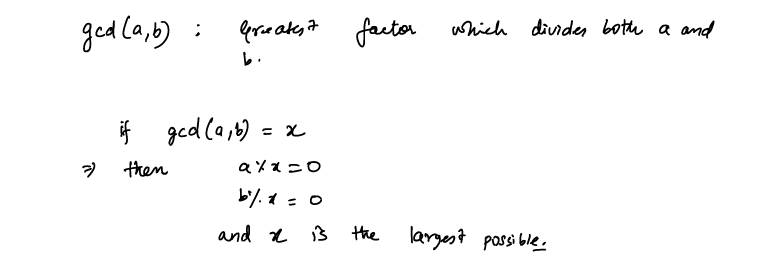 gcd(a,b) : Greatest factor which divides both a and
b.
if gcd(a,b) = x
⇒ then a % x = 0
b % x = 0
and x is the largest possible.